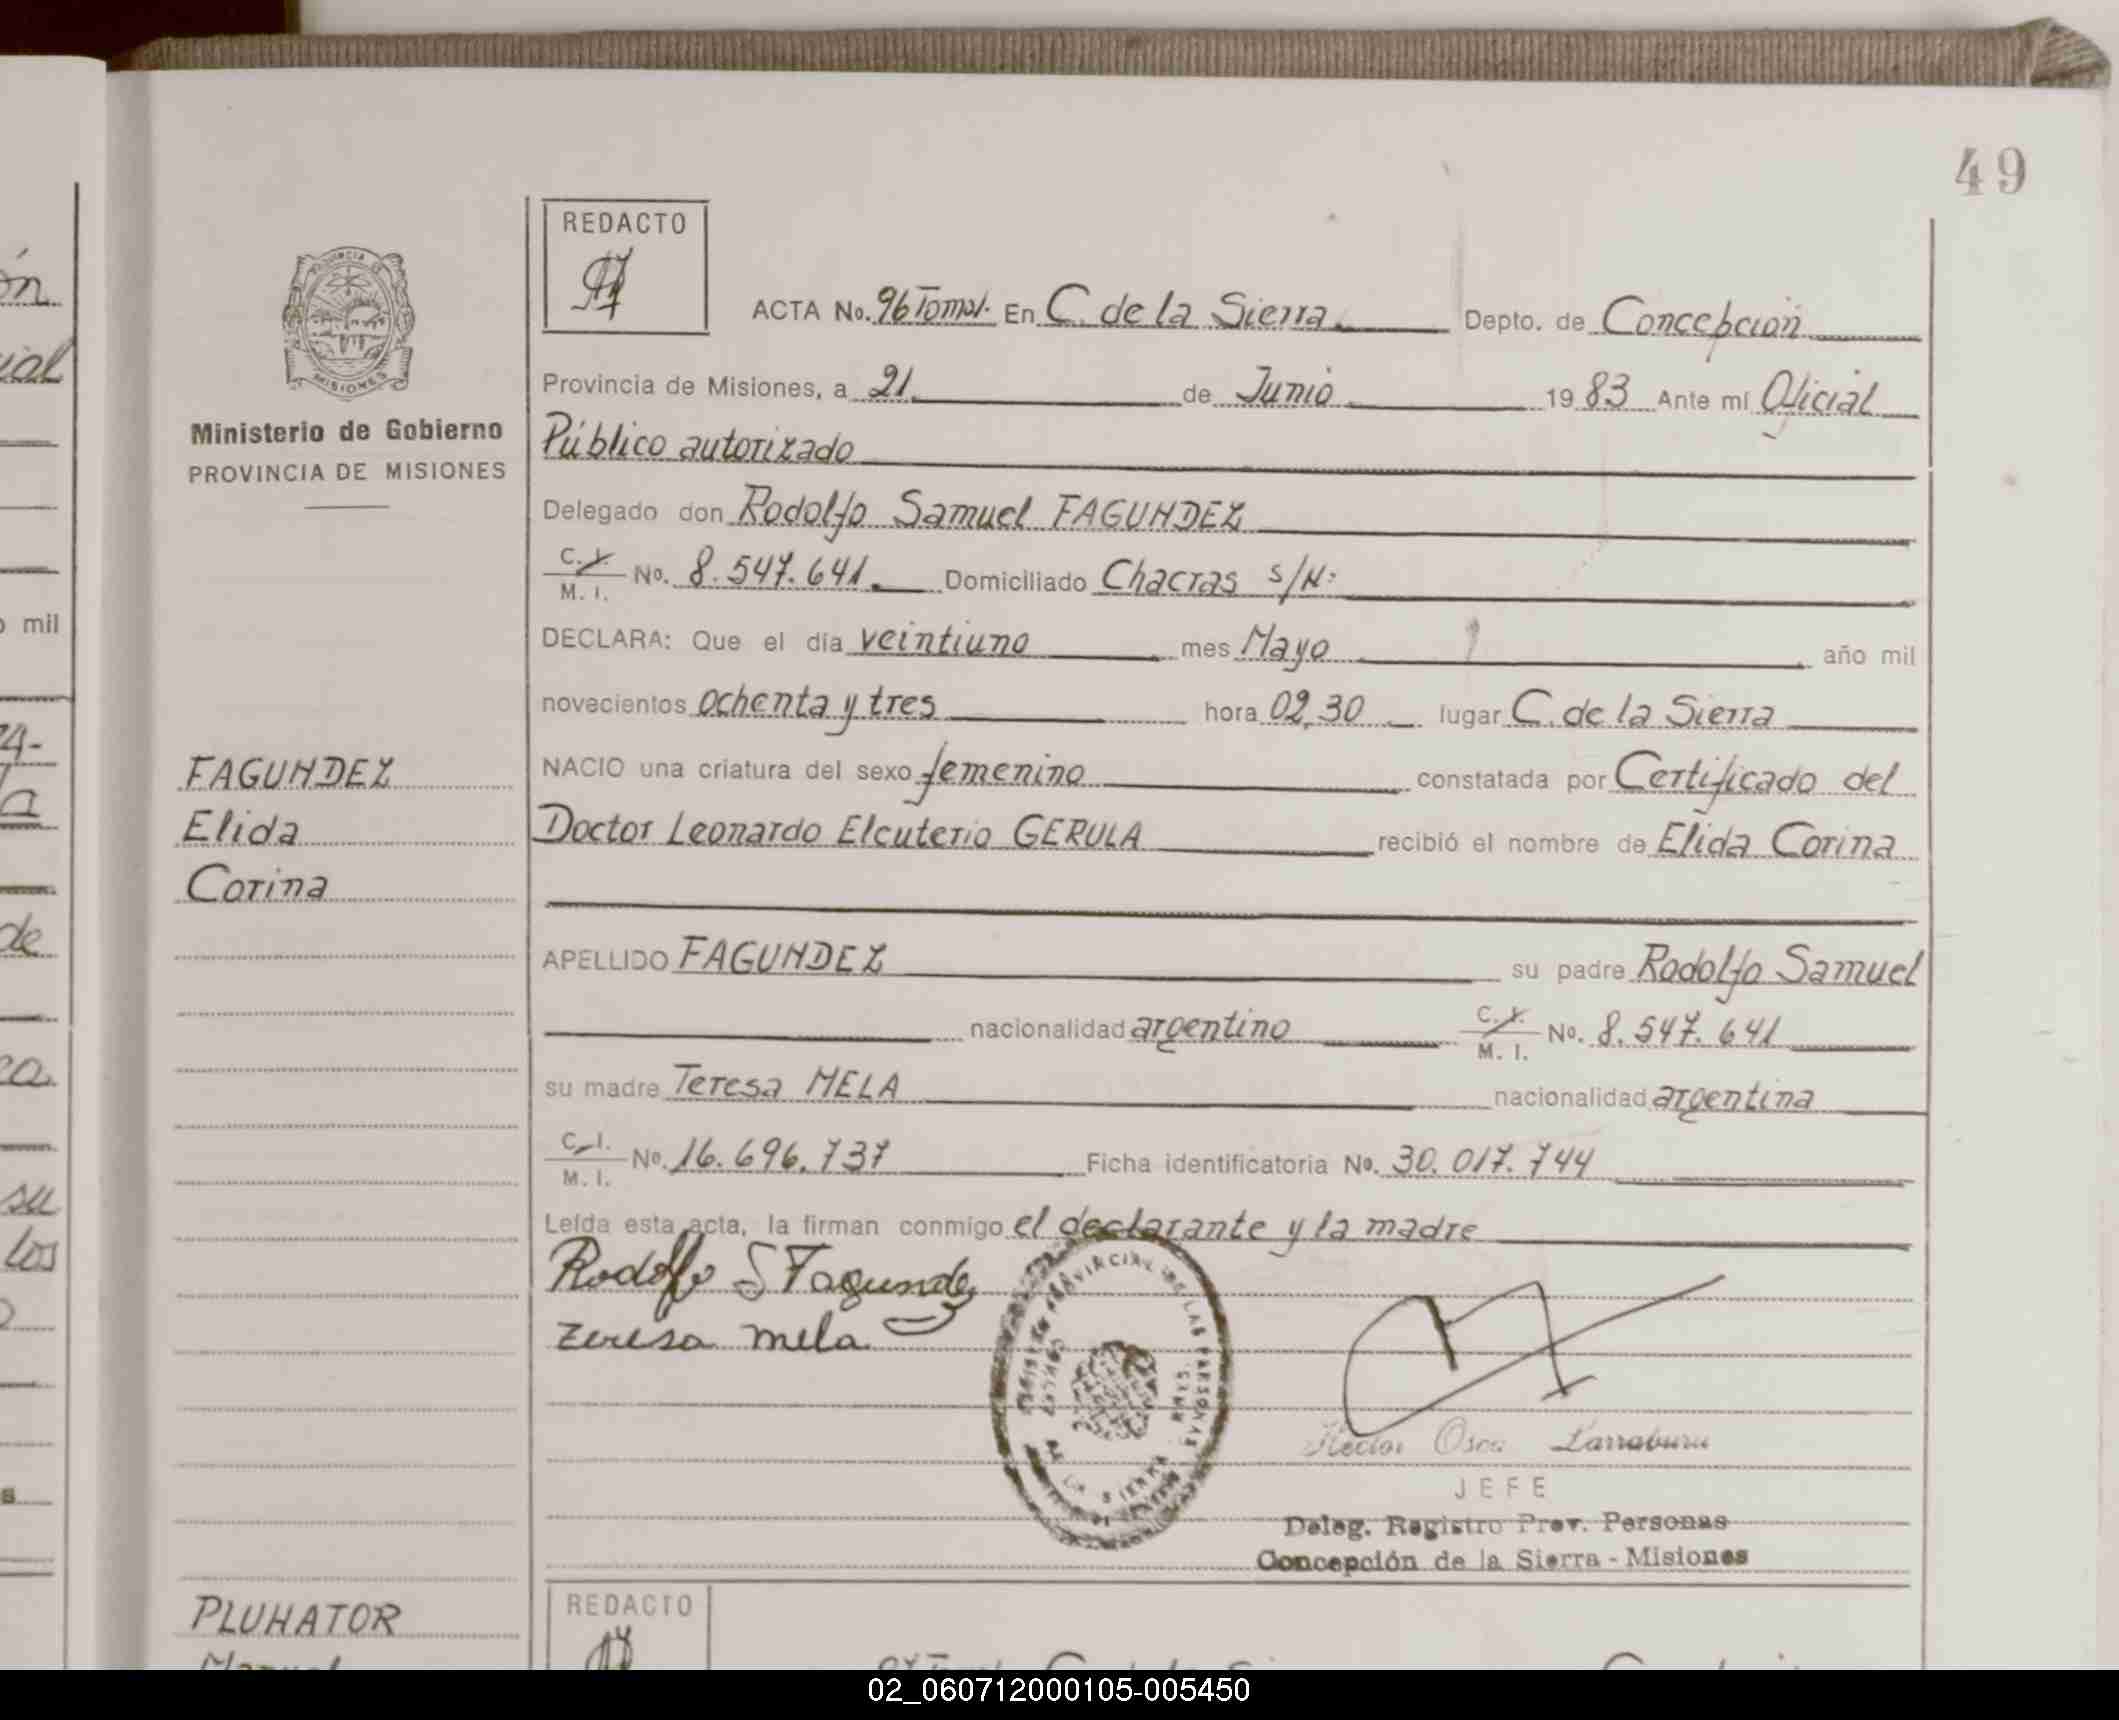 49
REDACTO
ACTA No. 96 Tomo I. En C. de la Sierra Depto. de Concepción
Provincia de Misiones, a 21 de Junio 1983 Ante mí Oficial
Público autorizado
Delegado don Rodolfo Samuel FAGUNDEZ
C. I.
M. I. No. 8.547.641. Domiciliado Chacras s/N:
DECLARA: Que el día veintiuno mes Mayo año mil
novecientos ochenta y tres hora 02,30 lugar C. de la Sierra
NACIO una criatura del sexo femenino constatada por Certificado del
Doctor Leonardo Eleuterio GERULA recibió el nombre de Elida Corina
APELLIDO FAGUNDEZ su padre Rodolfo Samuel
nacionalidad argentino C. I. M. I. No. 8.547.641
su madre Teresa MELA nacionalidad argentina
C. I.
M. I. No. 16.696.737 Ficha identificatoria No. 30.017.744
Leída esta acta, la firman conmigo el declarante y la madre
Rodolfo S Fagundez
Teresa mela
REGISTRO PROVINCIAL DE LAS PERSONAS
DE LA SIERRA
Hector Osca Larraburu
JEFE
Deleg. Registro Prov. Personas
Concepción de la Sierra - Misiones
PROVINCIA DE
MISIONES
Ministerio de Gobierno
PROVINCIA DE MISIONES
FAGUNDEZ
Elida
Corina
PLUHATOR
REDACTO
ón
ial
mil
de
su
los
02_060712000105-005450